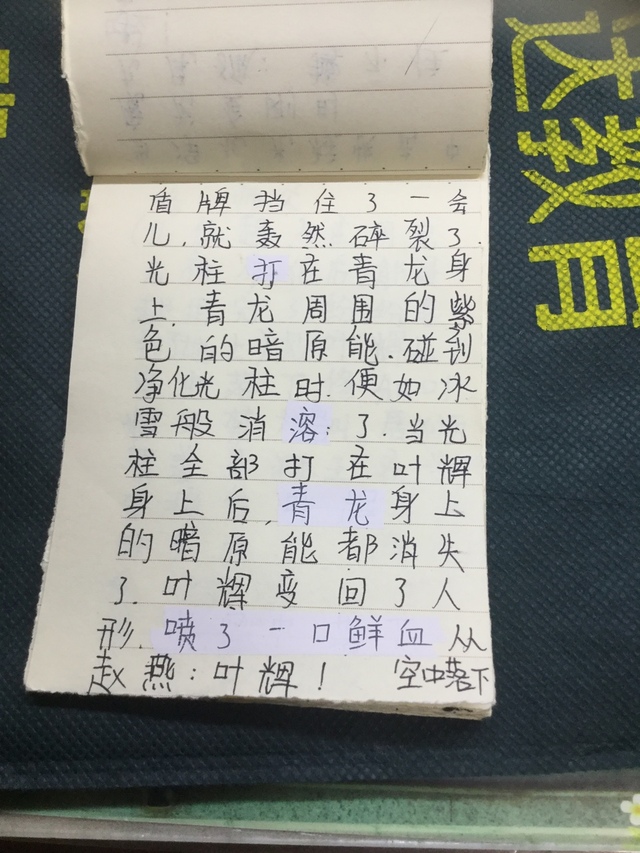 盾牌挡住了一会
儿,就轰然碎裂了.
光柱打在青龙身
上,青龙周围的紫
色的暗原能.碰到
净化光柱时.便如冰
雪般消溶:了.当光
柱全部打在叶辉
身上后,青龙身上
的暗原能都消失
了.叶辉变回了人
形.喷了一口鲜血从
赵燕:叶辉! 空中落下
达教育